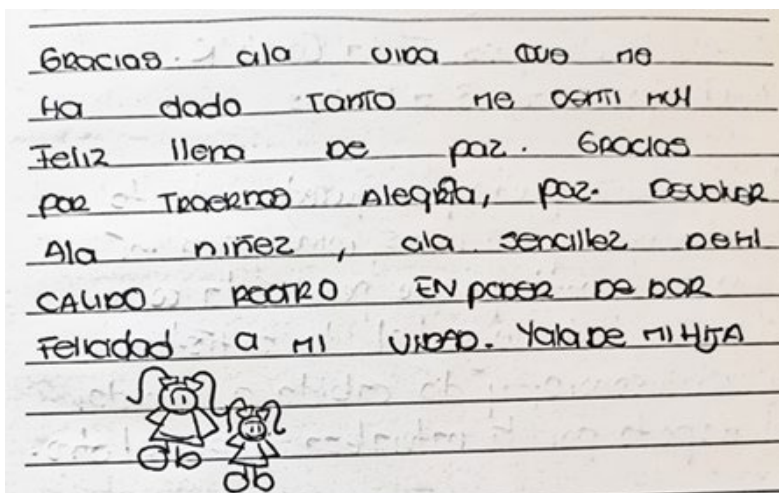 Gracias. ala vida que me
Ha dado Tanto me senti muy
Feliz llena De paz. Gracias
por Traernos Alegria, paz. Devolver
Ala niñez, ala sencillez De Mi
CALIDO ROSTRO EN poder De DAR
Felicidad a mi VIDAD. Yala De mi HIJA